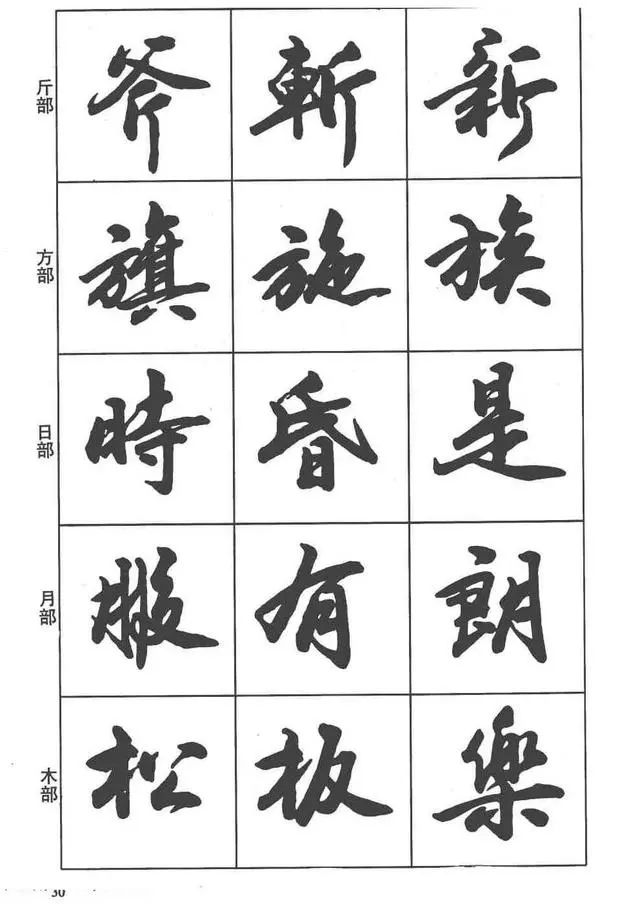 斤部 斧 斬 新
方部 旗 施 族
日部 時 昏 是
月部 服 有 朗
木部 松 板 樂
30